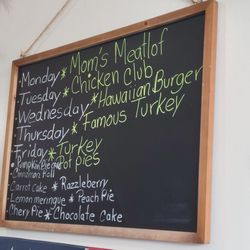 • Monday * Mom's Meatlof
• Tuesday * Chicken club
• Wednesday * Hawaiian Burger
• Thursday * Famous Turkey
• Friday * Turkey Pot pies
• Pumpkin
• Cinnamon Roll
• Carrot Cake * Razzleberry
• Lemon meringue * Peach Pie
• Chery Pie * Chocolate Cake